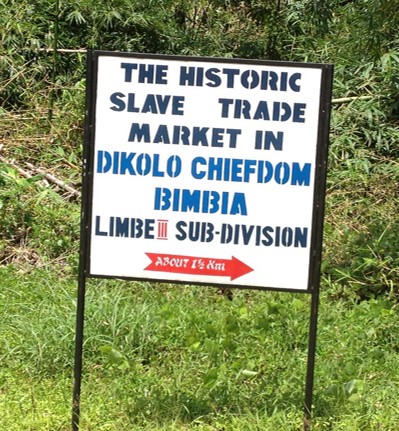 THE HISTORIC
SLAVE TRADE
MARKET IN
DIKOLO CHIEFDOM
BIMBIA
LIMBE III SUB-DIVISION
ABOUT 1½ Km